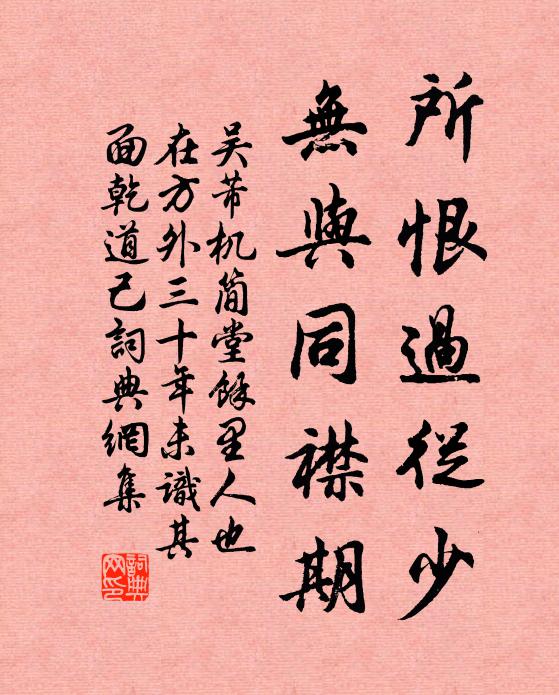 所恨過從少
無與同襟期
吳芾机簡堂餘里人也
在方外三十年未識其
面乾道己詞典網集
詞典網印